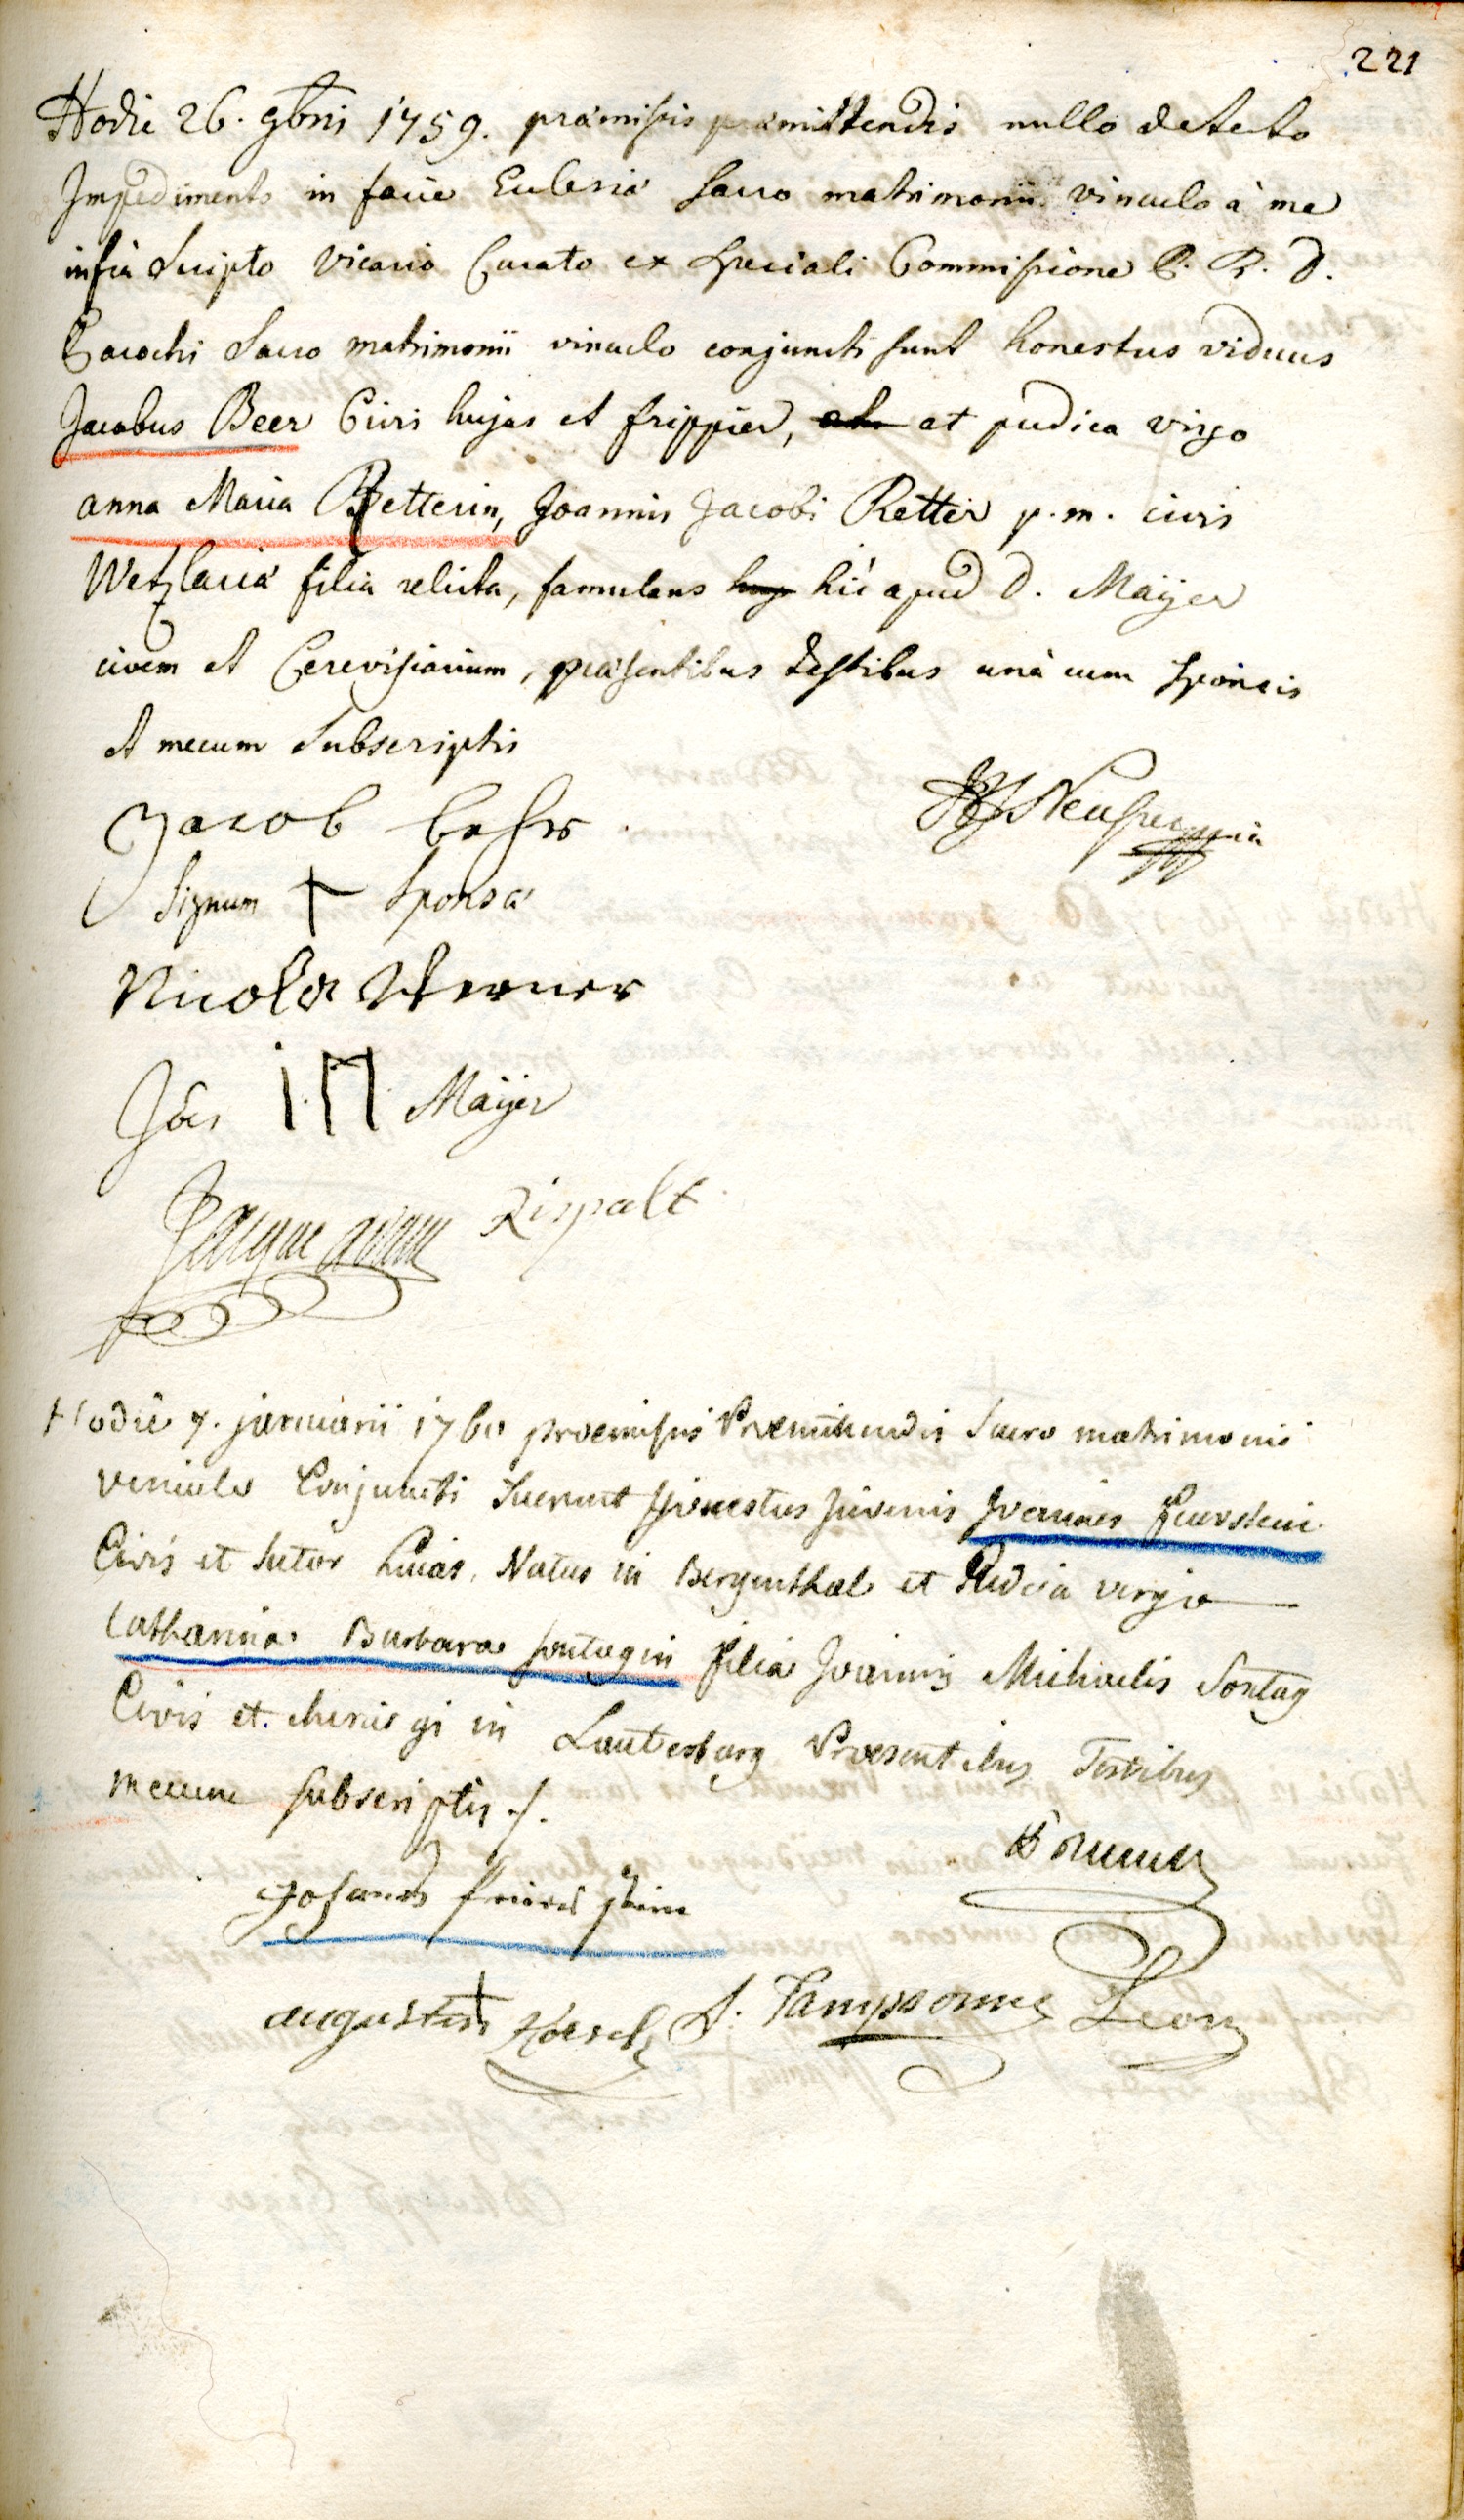 221
Hodie 26. 9bris 1759. præmissis præmittendis nullo detecto
Impedimento in facie Ecclesiæ Sacro matrimonii vinculo à me
infra Scripto Vicario Curato ex speciali Commissione P. R. D.
Parochi Sacro matrimonii vinculo conjuncti sunt honestus viduus
Jacobus Beer Civis hujas et frippier, et pudica virgo
anna Maria Retterin, Joannis Jacobi Retter p. m. civis
Wetzlariæ filia relicta, famulans hic apud D. Maÿer
civem et Cerevisiarium, præsentibus testibus unà cum Sponsis
et mecum Subscriptis
Jacob
Signum Sponsæ
Nicola Werner
Joes i M Maÿer
Jacque adam Rispalt
Hodie 7. januarii 1760 præmissis Præmittendis Sacro matrimonii
vinculo Conjuncti Fuerunt Honestus juvenis Joannes Feuerstein
Civis et Sutor huias, Natus in Bergenthal et Pudica virgo
Catharina Barbara sontagin filia Joannis Michaelis Sontag
Civis et chirurgi in Lauterburg Præsentibus Testibus
mecum subscriptis
Johannes
augustin S. Sampsonne Leon